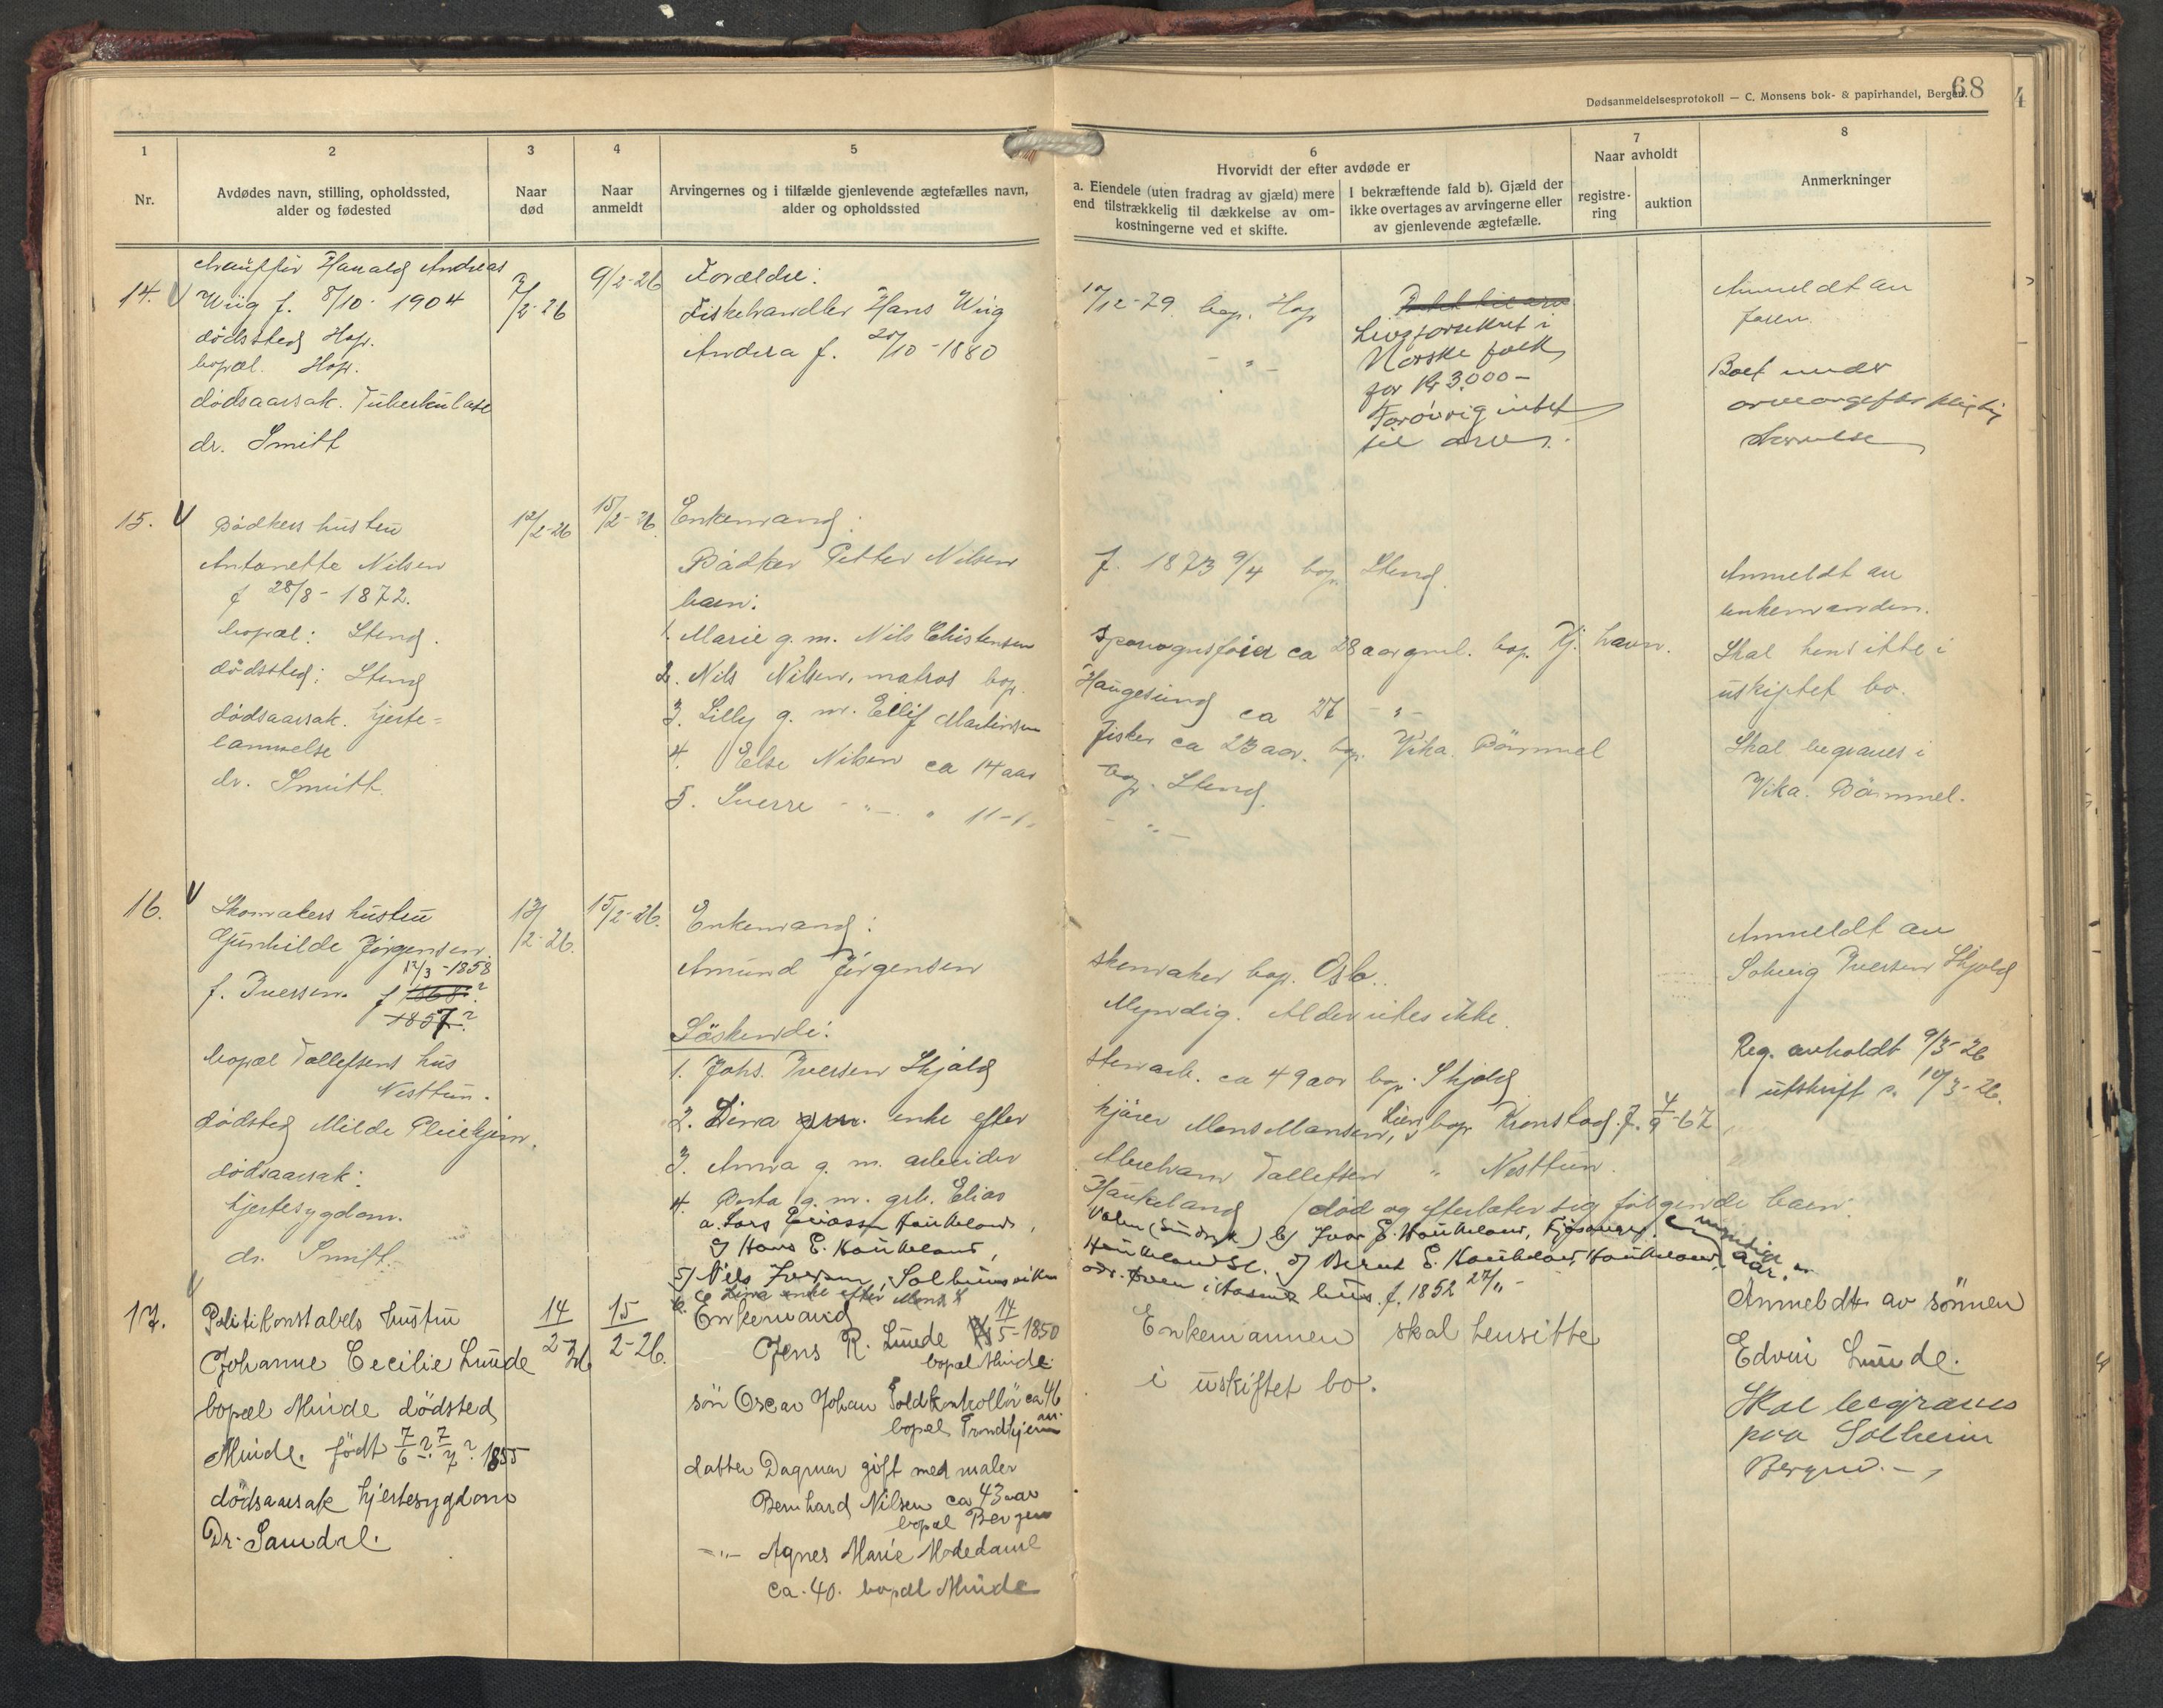 Dødsanmeldelsesprotokoll — C. Monsens bok- & papirhandel, Bergen.
68
4
1
Nr.
2
Avdødes navn, stilling, opholdssted,
alder og fødested
3
Naar
død
4
Naar
anmeldt
5
Arvingernes og i tilfælde gjenlevende ægtefælles navn,
alder og opholdssted
6
Hvorvidt der efter avdøde er
a. Eiendele (uten fradrag av gjæld) mere
end tilstrækkelig til dækkelse av om-
kostningerne ved et skifte.
I bekræftende fald b). Gjæld der
ikke overtages av arvingerne eller
av gjenlevende ægtefælle.
7
Naar avholdt
registre-
ring
auktion
8
Anmerkninger
14.
chauffør Harald Andreas
Wiig f. 8/10 - 1904
dödssted Hop.
bopæl. Hop.
dödsaarsak. Tuberkulose
dr. Smitt
7/2-26
9/2-26
Forældre:
Fiskehandler Hans Wiig
Andrea f. 20/10-1880
10/12-79. bop. Hop
- " -
Livsforsikret i
Norske folk
for Kr 3.000 -
Forövrig intet
til arv.
Anmeldt av
faren.
Boet under
arveavgiftspligtig
størrelse
15. V
Bödkers hustru
Antonette Nilsen
f 28/8 - 1872.
bopæl: Stend.
dödssted: Stend
dödsaarsak. hjerte=
lammelse
dr. Smitt.
12/2-26
15/2-26.
Enkemand:
Bödker Petter Nilsen
barn:
1. Marie g. m. Nils Christensen
2. Nils Nilsen, matros bop.
3. Lilly g. m. Ellif Martinsen
4. Else Nilsen ca 14 aar
5. Sverre - " - " 11 - " -
f. 1873 9/4 bop. Stend.
sporvognsfører ca 28 aar gml. bop. Kj. havn.
Haugesund ca 27 - " -
fisker ca 23 aar. bop. Vika. Bömmel
bop. Stend.
- " -
Anmeldt av
enkemanden.
Skal hensitte i
uskiftet bo.
Skal begraves i
Vika. Bömmel.
16. V
Skomakers hustru
Gunhilde Jörgensen.
12/3-1858
f. Iversen. f 1868?
1857?
bopæl Tollefsens hus
Nesttun.
dödssted Milde Pleiehjem.
dödsaarsak:
hjertesygdom.
dr. Smitt.
13/2-26.
15/2-26.
Enkemand:
Amund Jörgensen
Söskende:
1. Johs. Iversen Skjold
2. Dina enke efter
3. Anna g. m. arbeider
4. Berta g. m. grb. Elias
a. Lars Eliassen Haukeland,
c) Hans E. Haukeland,
5) Nils Iversen, Solheimsviken
skomaker bop. Oslo.
Myndig. Alder vites ikke.
stenarb. ca 49 aar bop. Skjold
kjörer Mons Monsen, Lien bop Kronstad. f. 4/9-67
Abraham Tollefsen " Nesttun.
Haukeland / död og efterlater sig fölgende barn:
b) Ivar E. Haukeland, Fjösanger.
Haukeland d) Bernt E. Haukeland, Haukeland,
hus. f. 1852 27/11 -
Anmeldt av
Solveig Iversen Skjold
Reg. avholdt 9/3-26
utskrift s. 10/3-26.
17.
Politikonstabels hustru
Johanne Cecilie Lunde
bopæl Minde dödsted
Minde. født 7/6?-7/7? 1855
dödsaarsak hjertesygdom
Dr. Samdal.
14/2-26
15/2-26.
Enkemand
Jens R. Lunde 14/5-1850
bopæl Minde.
sön Oscar Johan Toldkontrollör ca 46
aar.
bopæl Trondhjem
datter Dagmar gift med maler
Bernhard Nilsen ca 43 aar
bopæl Bergen
- " - Agnes Marie Modedame
ca. 40. bopæl Minde
Enkemannen skal hensitte
i uskiftet bo.
Anmeldt av sönnen
Edvin Lunde.
Skal begraves
paa Solheim
Bergen. -